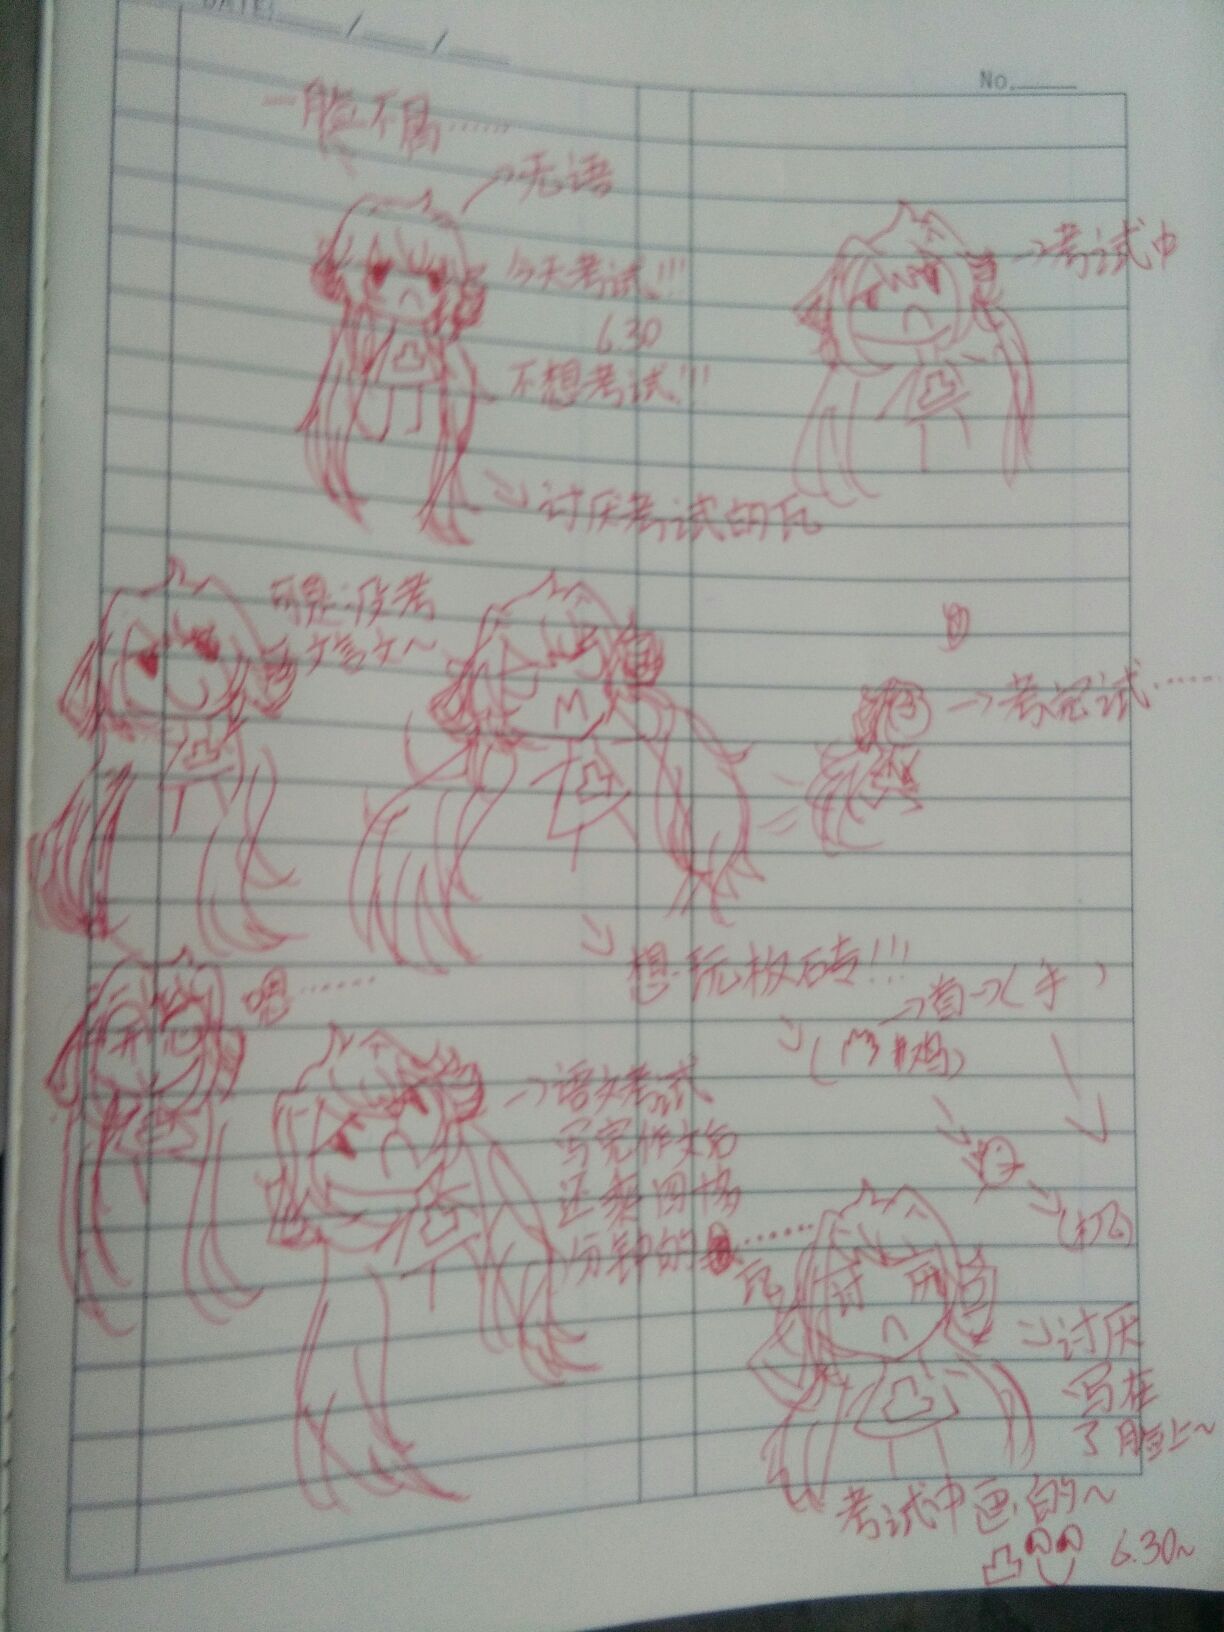 DATE: / /
No.
一脸不屑……
→无语
今天考试!!!
6.30
不想考试!!!
→考试中
→讨厌考试的瓦
可是没考
文言文~
→考完试……
→想玩板砖!!!
→首→(手)
→(机)
嗯……
→语文考试
写完作文后
还剩四十多
分钟的
瓦
讨 厌
→讨厌
写在
了脸上~
考试中画的~
凸
6.30~